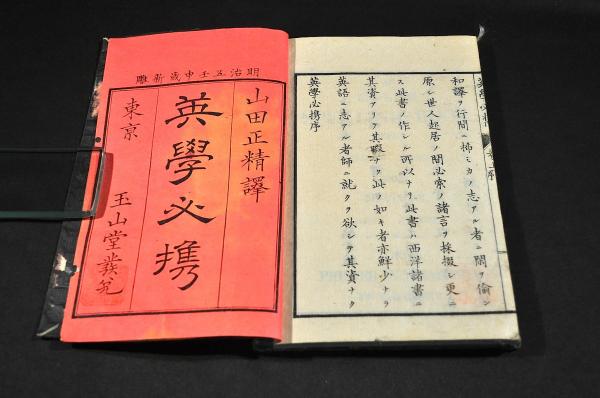 明治五壬申歳新雕
山田正精譯
英學必携
東京 玉山堂發兌
英學必携序
英語ニ志アル者師ニ就クヲ欲シテ其資ナク
其資アリテ其暇ナク此ノ如キ者亦鮮少ナラ
ス此書ノ作シル所以ナリ此書ハ西洋諸書ニ
原シ世人起居ノ間必索ノ諸言ヲ採掇シ更ニ
和譯ヲ行間ニ挿ミカノ志アル者ニ閒ヲ偷シ